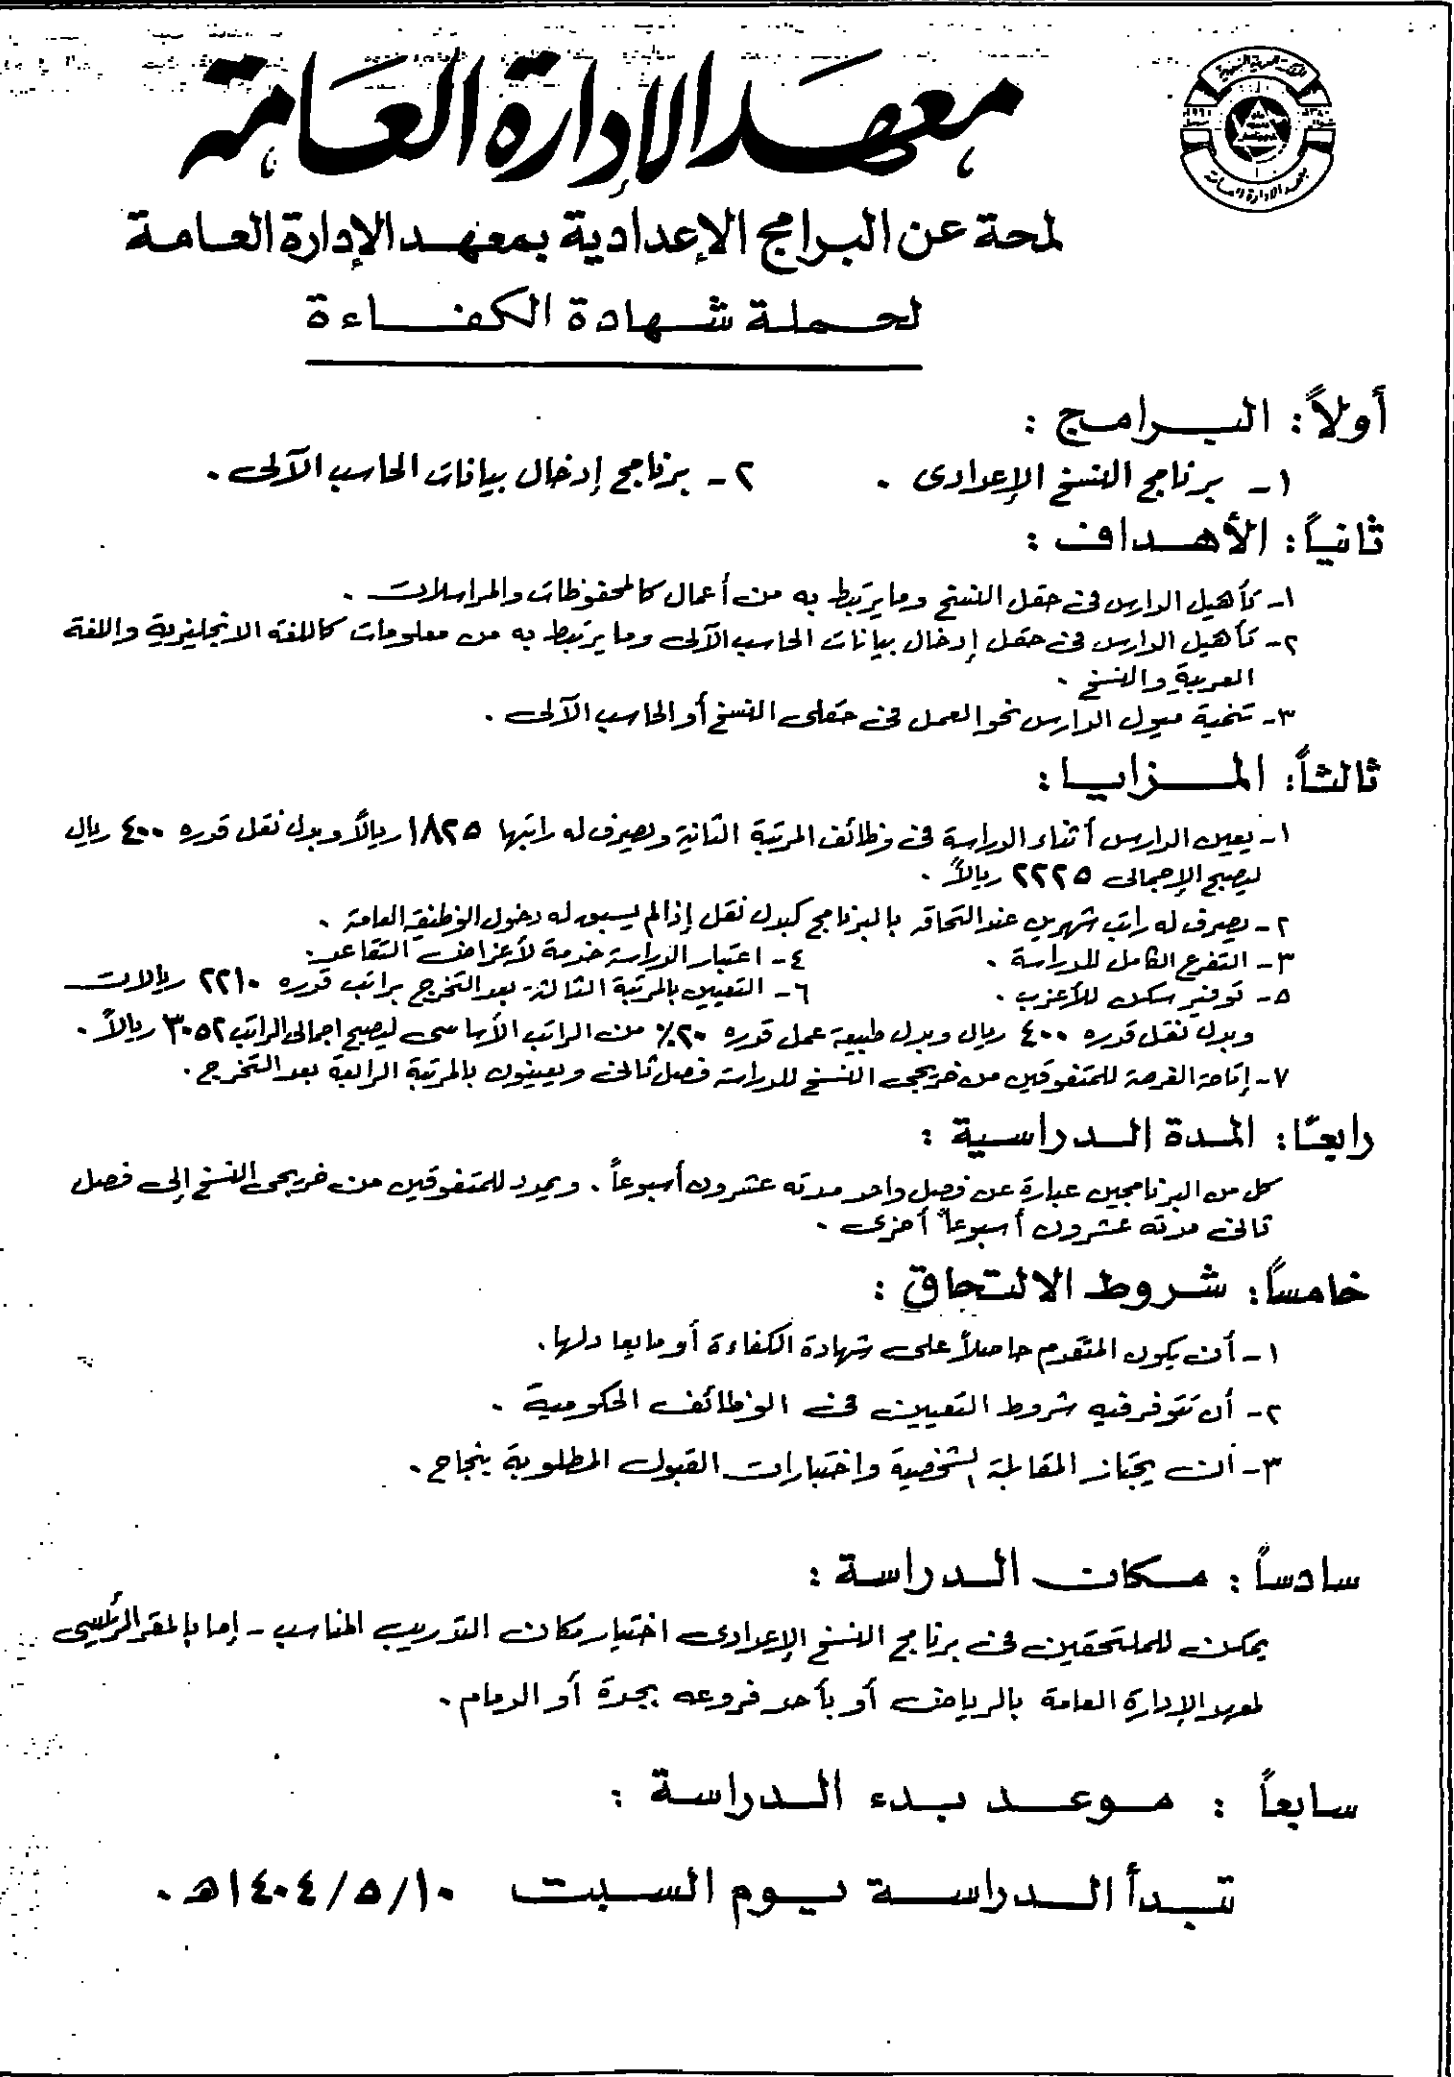 معهد الإدارة العامة
معهد الإدارة العامة
لمحة عن البرامج الإعدادية بمعهد الإدارة العامة
لحملة شهادة الكفاءة
أولاً: البرامج :
١- برنامج النسخ الإعدادى . ٢- برنامج إدخال بيانات الحاسب الآلى .
ثانياً: الأهداف :
١- تأهيل الدارس فى حقل النسخ وما يرتبط به من أعمال كالمحفوظات والمراسلات .
٢- تأهيل الدارس فى حقل إدخال بيانات الحاسب الآلى وما يرتبط به من معلومات كاللغة الانجليزية واللغة
العربية والنسخ .
٣- تنمية ميول الدارس نحو العمل فى حقلى النسخ أو الحاسب الآلى .
ثالثاً: المزايا :
١- يعين الدارس أثناء الدراسة فى وظائف المرتبة الثانية ويصرف له راتبها ١٨٢٥ ريالاً وبدل نقل قدره ٤٠٠ ريال
ليصبح الإجمالى ٢٢٢٥ ريالاً .
٢- يصرف له راتب شهرين عند التحاقه بالبرنامج كبدل نقل إذا لم يسبق له دخول الوظيفة العامة .
٣- التفرغ الكامل للدراسة . ٤- اعتبار الدراسة خدمة لأغراض التقاعد .
٥- توفير سكن للأعزب . ٦- التعيين بالمرتبة الثالثة بعد التخرج براتب قدره ٢٢١٠ ريالات
وبدل نقل قدره ٤٠٠ ريال وبدل طبيعة عمل قدره ٢٠٪ من الراتب الأساسى ليصبح اجمالى الراتب ٣٠٥٢ ريالاً .
٧- إتاحة الفرصة للمتفوقين من خريجى النسخ للدراسة فصل ثانى ويعينون بالمرتبة الرابعة بعد التخرج .
رابعاً: المدة الدراسية :
كل من البرنامجين عبارة عن فصل واحد مدته عشرون أسبوعاً . ويمدد للمتفوقين من خريجى النسخ إلى فصل
ثانى مدته عشرون أسبوعاً أخرى .
خامساً: شروط الالتحاق :
١- أن يكون المتقدم حاصلاً على شهادة الكفاءة أو ما يعادلها .
٢- أن تتوفر فيه شروط التعيين فى الوظائف الحكومية .
٣- أن يجتاز المقابلة الشخصية واختبارات القبول المطلوبة بنجاح .
سادساً : مكان الدراسة :
يمكن للملتحقين فى برنامج النسخ الإعدادى اختيار مكان التدريب المناسب - إما بالمقر الرئيسى
لمعهد الإدارة العامة بالرياض أو بأحد فروعه بجدة أو الدمام .
سابعاً : موعد بدء الدراسة :
تبدأ الدراسة يوم السبت ١٤٠٤/٥/١٠هـ .